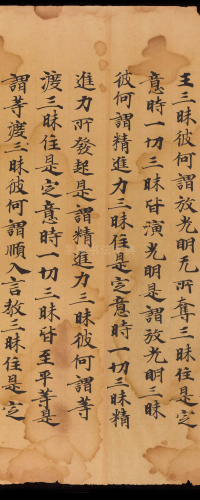 王三昧彼何謂放光明无所奪三昧住是定
意時一切三昧皆演光明是謂放光明三昧
彼何謂精進力三昧住是定意時一切三昧精
進力所發起是謂精進力三昧彼何謂等
渡三昧住是定意時一切三昧皆至平等是
謂等渡三昧彼何謂順入言教三昧住是定